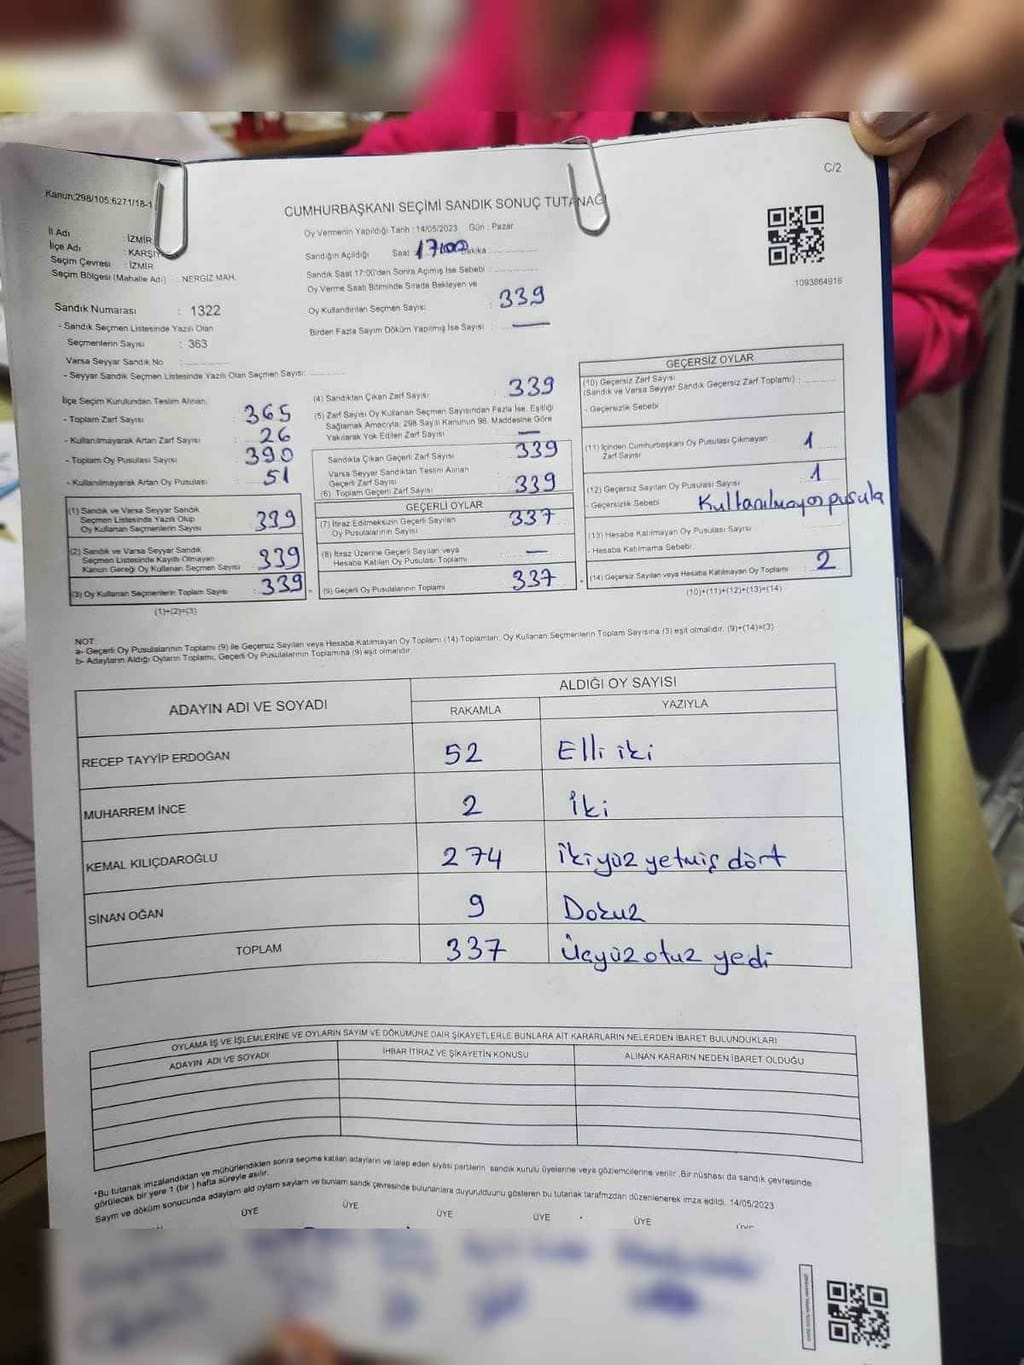 C/2
Kanun;298/105;6271/18-1
CUMHURBAŞKANI SEÇİMİ SANDIK SONUÇ TUTANAĞI
İl Adı : İZMİR
İlçe Adı : KARŞIY
Seçim Çevresi : İZMİR
Seçim Bölgesi (Mahalle Adı) : NERGİZ MAH.
Sandık Numarası : 1322
- Sandık Seçmen Listesinde Yazılı Olan
Seçmenlerin Sayısı : 363
Varsa Seyyar Sandık No :
- Seyyar Sandık Seçmen Listesinde Yazılı Olan Seçmen Sayısı:
Oy Vermenin Yapıldığı Tarih : 14/05/2023 Gün : Pazar
Sandığın Açıldığı Saat 17:00 Dakika
Sandık Saat 17:00'den Sonra Açılmış İse Sebebi :
Oy Verme Saati Bitiminde Sırada Bekleyen ve
Oy Kullandırılan Seçmen Sayısı : 339
Birden Fazla Sayım Döküm Yapılmış İse Sayısı : —
1093864916
İlçe Seçim Kurulundan Teslim Alınan:
- Toplam Zarf Sayısı : 365
- Kullanılmayarak Artan Zarf Sayısı : 26
- Toplam Oy Pusulası Sayısı : 390
- Kullanılmayarak Artan Oy Pusulası : 51
(1) Sandık ve Varsa Seyyar Sandık
Seçmen Listesinde Yazılı Olup
Oy Kullanan Seçmenlerin Sayısı : 339
(2) Sandık ve Varsa Seyyar Sandık
Seçmen Listesinde Kayıtlı Olmayan
Kanun Gereği Oy Kullanan Seçmen Sayısı : 339
(3) Oy Kullanan Seçmenlerin Toplam Sayısı : 339
(1)+(2)=(3)
(4) Sandıktan Çıkan Zarf Sayısı : 339
(5) Zarf Sayısı Oy Kullanan Seçmen Sayısından Fazla İse, Eşitliği
Sağlamak Amacıyla; 298 Sayılı Kanunun 98. Maddesine Göre
Yakılarak Yok Edilen Zarf Sayısı : —
Sandıkta Çıkan Geçerli Zarf Sayısı : 339
Varsa Seyyar Sandıktan Teslim Alınan
Geçerli Zarf Sayısı :
(6) Toplam Geçerli Zarf Sayısı : 339
GEÇERLİ OYLAR
(7) İtiraz Edilmeksizin Geçerli Sayılan
Oy Pusulalarının Sayısı : 337
(8) İtiraz Üzerine Geçerli Sayılan veya
Hesaba Katılan Oy Pusulası Toplamı : —
(9) Geçerli Oy Pusulalarının Toplamı : 337
GEÇERSİZ OYLAR
(10) Geçersiz Zarf Sayısı
(Sandık ve Varsa Seyyar Sandık Geçersiz Zarf Toplamı) :
- Geçersizlik Sebebi :
(11) İçinden Cumhurbaşkanı Oy Pusulası Çıkmayan
Zarf Sayısı : 1
(12) Geçersiz Sayılan Oy Pusulası Sayısı : 1
- Geçersizlik Sebebi : Kullanılmayan pusula
(13) Hesaba Katılmayan Oy Pusulası Sayısı :
- Hesaba Katılmama Sebebi :
(14) Geçersiz Sayılan veya Hesaba Katılmayan Oy Toplamı : 2
(10)+(11)+(12)+(13)=(14)
NOT:
a- Geçerli Oy Pusulalarının Toplamı (9) ile Geçersiz Sayılan veya Hesaba Katılmayan Oy Toplamı (14) Toplamları, Oy Kullanan Seçmenlerin Toplam Sayısına (3) eşit olmalıdır. (9)+(14)=(3)
b- Adayların Aldığı Oyların Toplamı, Geçerli Oy Pusulalarının Toplamına (9) eşit olmalıdır.
ADAYIN ADI VE SOYADI ALDIĞI OY SAYISI
RAKAMLA YAZIYLA
RECEP TAYYİP ERDOĞAN 52 Elli iki
MUHARREM İNCE 2 İki
KEMAL KILIÇDAROĞLU 274 İkiyüz yetmiş dört
SİNAN OĞAN 9 Dokuz
TOPLAM 337 Üçyüz otuz yedi
OYLAMA İŞ VE İŞLEMLERİNE VE OYLARIN SAYIM VE DÖKÜMÜNE DAİR ŞİKAYETLERLE BUNLARA AİT KARARLARIN NELERDEN İBARET BULUNDUKLARI
ADAYIN ADI VE SOYADI İHBAR İTİRAZ VE ŞİKAYETİN KONUSU ALINAN KARARIN NEDEN İBARET OLDUĞU
*Bu tutanak imzalandıktan ve mühürlendikten sonra seçime katılan adayların ve talep eden siyasi partilerin sandık kurulu üyelerine veya gözlemcilerine verilir. Bir nüshası da sandık çevresinde
görülecek bir yere 1 (bir) hafta süreyle asılır.
Sayım ve döküm sonucunda adayların aldığı oyların sayıları ve bunların sandık çevresinde bulunanlara duyurulduğunu gösteren bu tutanak tarafımızdan düzenlenerek imza edildi. 14/05/2023
ÜYE ÜYE ÜYE ÜYE ÜYE ÜYE